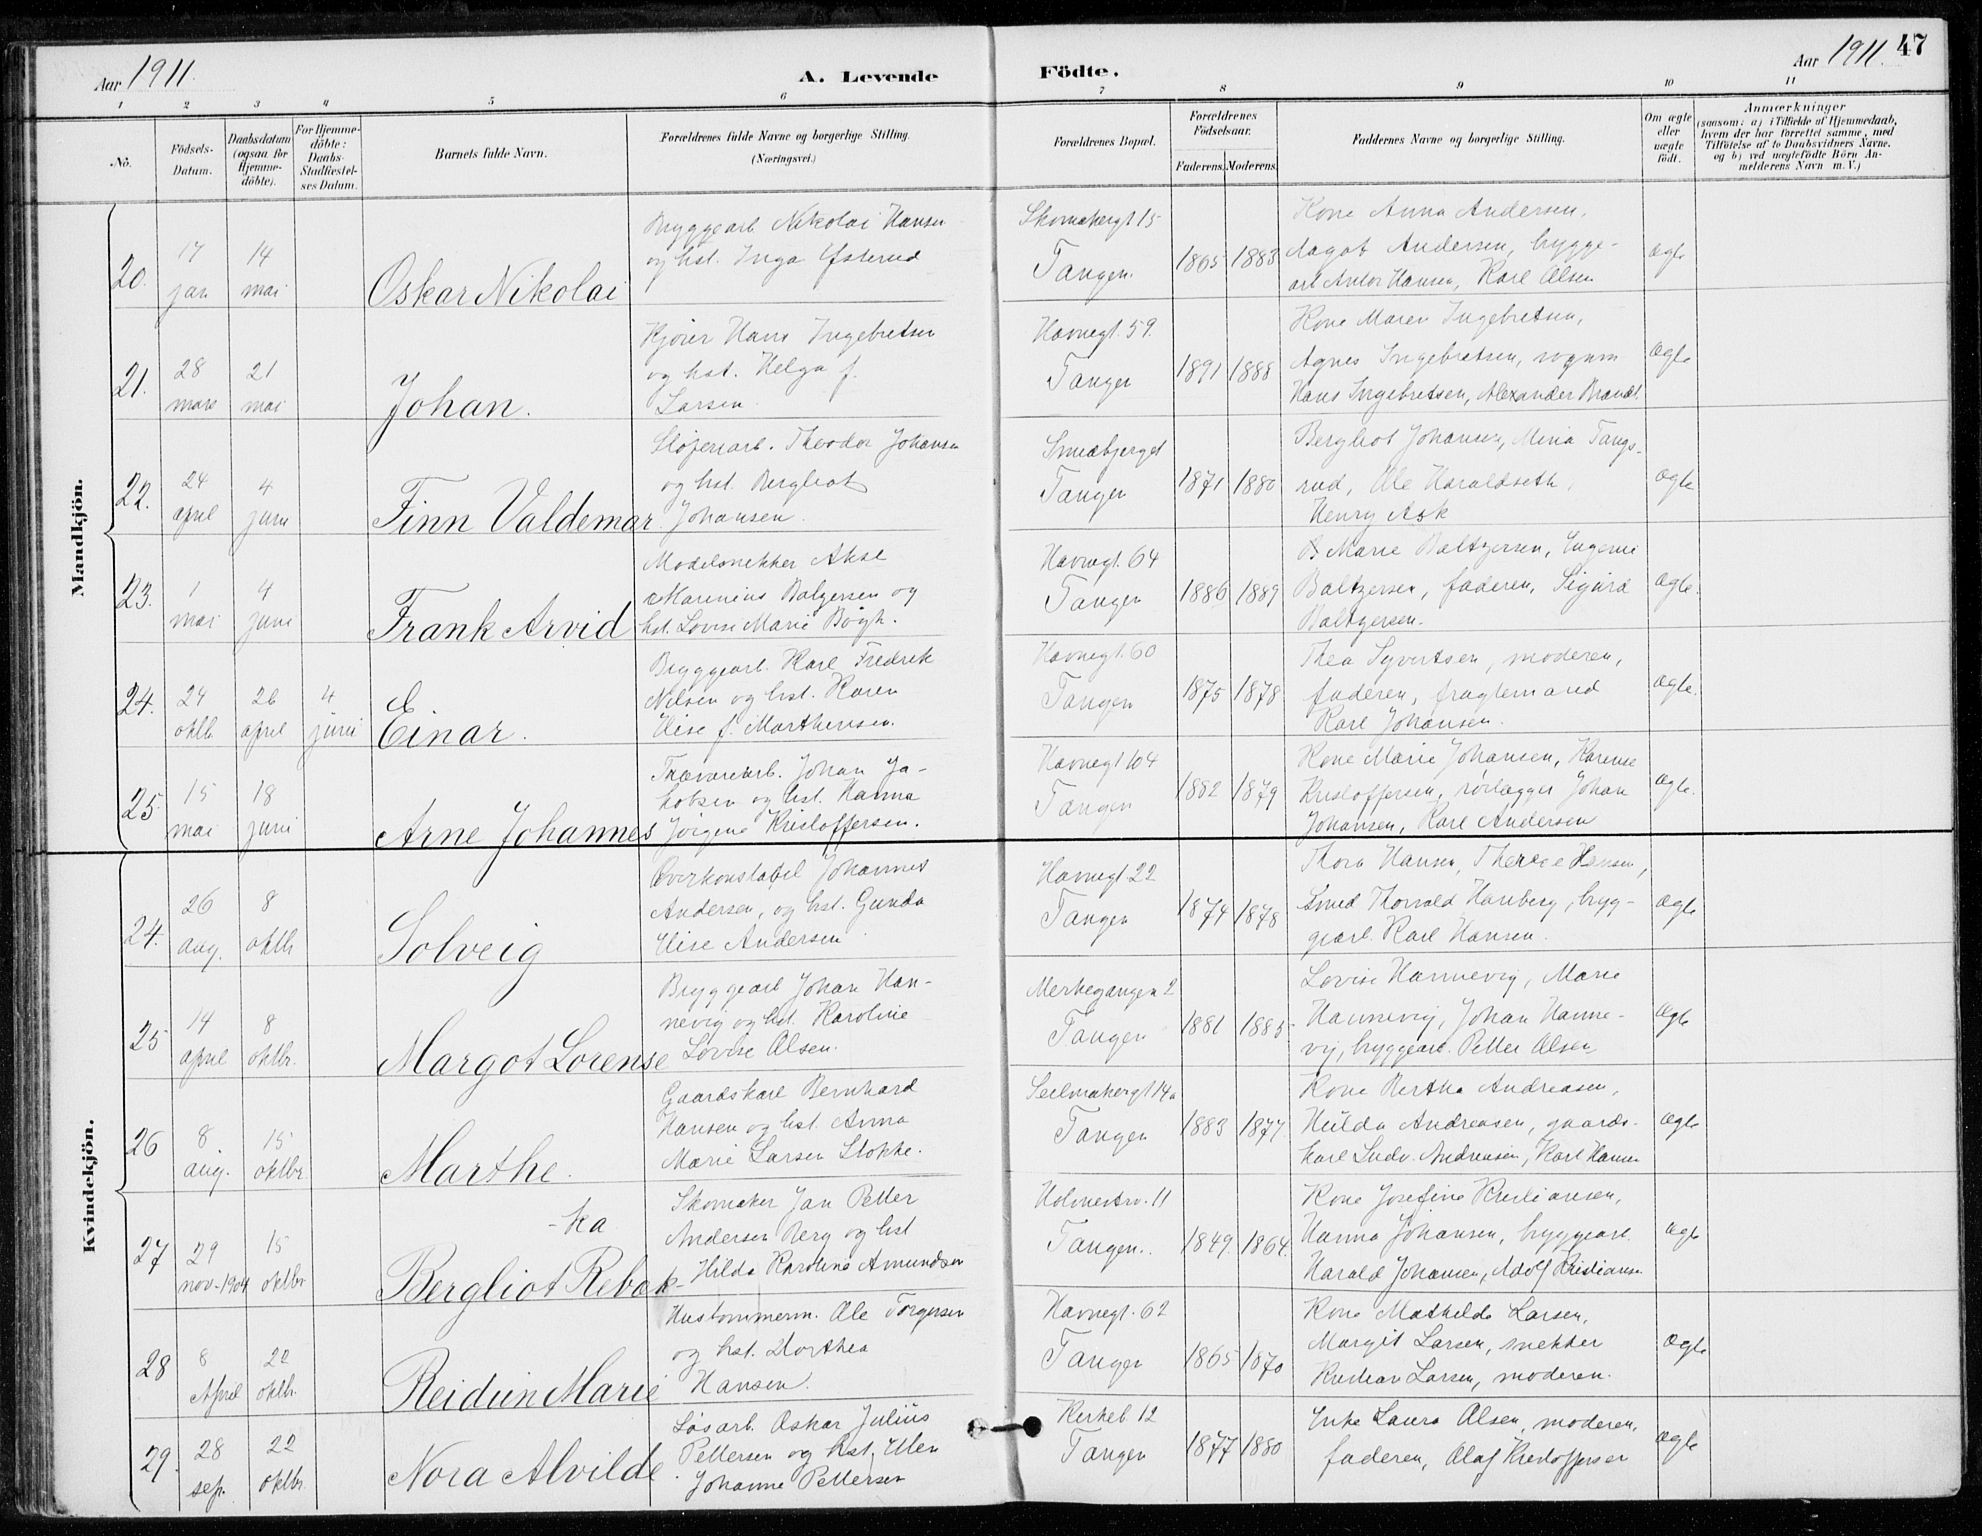 Aar 1911. A. Levende Födte. Aar 1911. 47
1 2 3 4 5 6 7 8 9 10 11
No. Födsels-Datum. Daabsdatum (ogsaa for Hjemme-döbte). For Hjemme-döbte: Daabs-Stadfæstel-ses Datum. Barnets fulde Navn. Forældrenes fulde Navne og borgerlige Stilling. (Næringsvei.) Forældrenes Bopæl. Forældrenes Födselsaar. Faderens. Moderens. Faddernes Navne og borgerlige Stilling. Om ægte eller uægte födt. Anmærkninger (saasom: a) i Tilfælde af Hjemmedaab, hvem der har forrettet samme, med Tilföielse af to Daabsvidners Navne, og b) ved uægtefödte Börn An-melderens Navn m. V.)
Mandkjön.
20. 17 jan 14 mai Oskar Nikolai
Bryggearb Nikolai Hansen
og hst. Inga
Skomakergt 15
Tangen. 1865 1883
Kone Anna Andersen,
Aagot Andersen, brygge-
arb Anton Hansen, Karl Olsen
ægte
21. 28 mars 21 mai Johan.
Kjører Hans Ingebretsen
og hst. Helga f.
Larsen.
Havnegt. 59.
Tangen 1891 1888
Kone Maren Ingebretsen,
Agnes Ingebretsen, vognm
Hans Ingebretsen, Alexander Brandt.
ægte
22. 24 april 4 juni Finn Valdemar.
Sløjeriarb. Theodor Johansen
og hst. Bergliot
Johansen.
Smedbjerget
Tangen 1871 1880
Bergliot Johansen, Mina Tangs-
rud, Ole Haraldseth,
Henry Ask
ægte
23. 1 mai 4 juni Frank Arvid
Modelsnekker Aksel
Marinius Baltzersen og
hst. Lovise Marie Bøgh.
Havnegt. 64
Tangen 1886 1889
Marie Baltzersen, Eugenie
Baltzersen, faderen, Sigurd
Baltzersen.
ægte.
24. 24 oktb. 26 april 4 juni Einar.
Bryggearb. Karl Fredrik
Nilsen og hst. Karen
Elise f. Marthinsen.
Havnegt. 60
Tangen 1875 1878
Thea Syvertsen, moderen,
faderen, fragtemand
Karl Johansen.
ægte.
25. 15 mai 18 juni Arne Johannes
Trævarearb. Johan Ja-
kobsen og hst. Hanna
Jørgine Kristoffersen.
Havnegt 104
Tangen 1882 1879
Kone Marie Johansen, Karense
Kristoffersen, rørlægger Johan
Johansen, Karl Andersen
ægte.
Kvindekjön.
24. 26 aug. 8 oktb Solveig
Overkonstabel Johannes
Andersen, og hst. Gunda
Elise Andersen
Havnegt. 22
Tangen 1874 1878
Thora Hansen, Therese Hansen,
Smed Thorvald Hanberg, bryg-
gearb. Karl Hansen.
ægte
25 14 april 8 oktbr. Margot Lorense
Bryggearb Johan Han-
nevig og hst. Karoline
Lovise Olsen.
Merkegangen 2
Tangen 1881 1885
Lovise Hannevig, Marie
Hannevig, Johan Hanne-
vig, bryggearb. Petter Olsen
ægte
26 8 aug. 15 oktbr. Marthe.
Gaardskarl Bernhard
Hansen og hst. Anna
Marie Larsen Stokke.
Seilmakergt 14a
Tangen 1883 1877.
Kone Bertha Andreasen,
Hulda Andreasen, gaards-
karl Ludv. Andreasen, Karl Hansen
ægte
27 29 nov-1904 15 oktbr Bergliot Rebek-
-ka
Skomaker Jan Petter
Andersen Berg og hst
Hilda Karoline Amundsen
Holmestrv. 11
Tangen.. 1849 1864.
Kone Josefine Kristiansen,
Hanna Johansen, bryggearb.
Harald Johansen, Adolf Kristiansen
ægte
28 8 April 22 oktb. Reidun Marie
Hustømmerm. Ole Torgersen
og hst. Dorthea
Hansen.
Havnegt. 62
Tangen 1865 1870
Kone Mathilde Larsen,
Margit Larsen, snekker
Kristian Larsen, moderen.
ægte
29. 28 sep. 22 oktbr Nora Alvilde
Løsarb. Oskar Julius
Pettersen og hst. Ellen
Johanne Pettersen
Kirkeb 12
Tangen 1877 1880
Enke Laura Olsen, moderen,
faderen, Olaf Kristoffersen
ægte